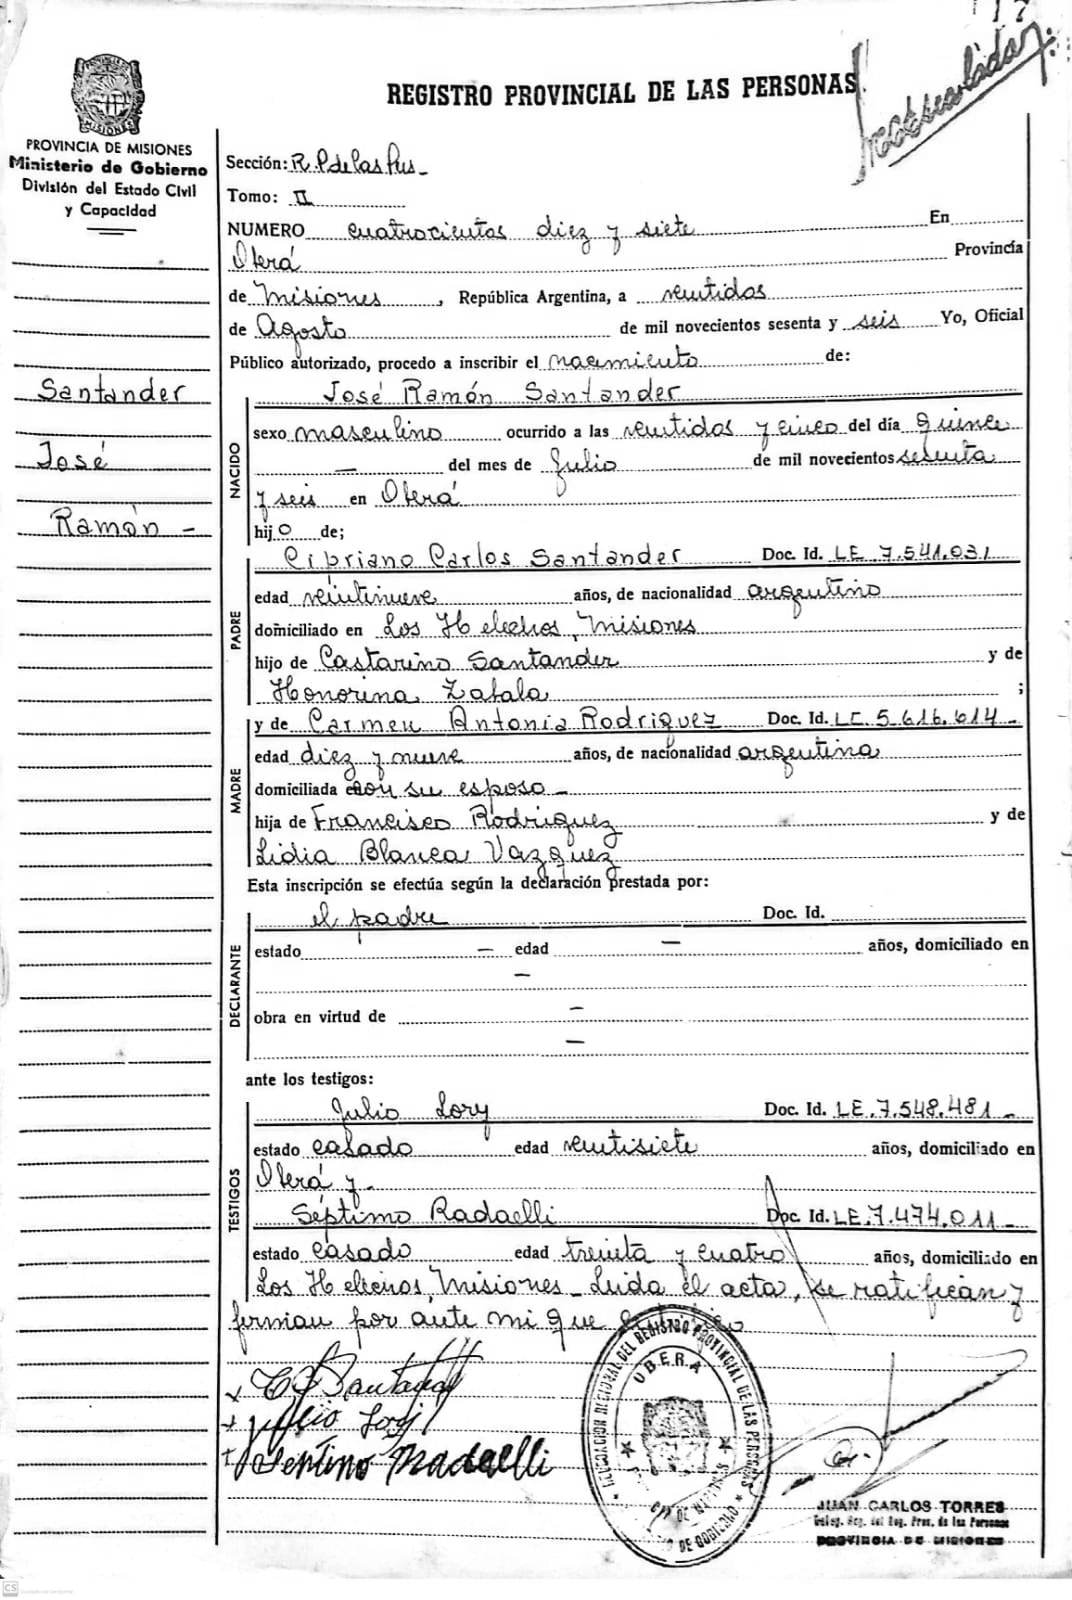 REGISTRO PROVINCIAL DE LAS PERSONAS
PROVINCIA DE MISIONES
Ministerio de Gobierno
División del Estado Civil
y Capacidad
Santander
José
Ramón -
Sección: R.P de las Pers -
Tomo: II
NUMERO cuatrocientos diez y siete En
Oberá Provincia
de Misiones, República Argentina, a veintidos
de Agosto de mil novecientos sesenta y seis Yo, Oficial
Público autorizado, procedo a inscribir el nacimiento de:
José Ramón Santander
NACIDO
sexo masculino ocurrido a las veintidos y cinco del día quince
— del mes de Julio de mil novecientos sesenta
y seis en Oberá
hijo de;
Cipriano Carlos Santander Doc. Id. LE 7.541.031
PADRE
edad veintinueve años, de nacionalidad argentino
domiciliado en Los Helechos, Misiones
hijo de Castarino Santander y de
Honorina Zabala ;
y de Carmen Antonia Rodriguez Doc. Id. LC 5.616.614 -
MADRE
edad diez y nueve años, de nacionalidad argentina
domiciliada con su esposo -
hija de Francisco Rodriguez y de
Lidia Blanca Vazquez
Esta inscripción se efectúa según la declaración prestada por:
el padre Doc. Id.
DECLARANTE
estado — edad — años, domiciliado en
—
obra en virtud de —
—
ante los testigos:
Julio Lory Doc. Id. LE.7.548.481 -
TESTIGOS
estado casado edad veintisiete años, domiciliado en
Oberá y -
Séptimo Radaelli Doc. Id. LE.7.474.011 -
estado casado edad treinta y cuatro años, domiciliado en
Los Helechos, Misiones - Leida el acta, se ratifican y
firman por ante mi que
x C Santander
+ Julio Lory
+ Septimo Radaelli
DELEGACION REGIONAL DEL REGISTRO PROVINCIAL DE LAS PERSONAS
OBERA
JUAN CARLOS TORRES
Deleg. Reg. del Reg. Prov. de las Personas
PROVINCIA DE MISIONES
CS